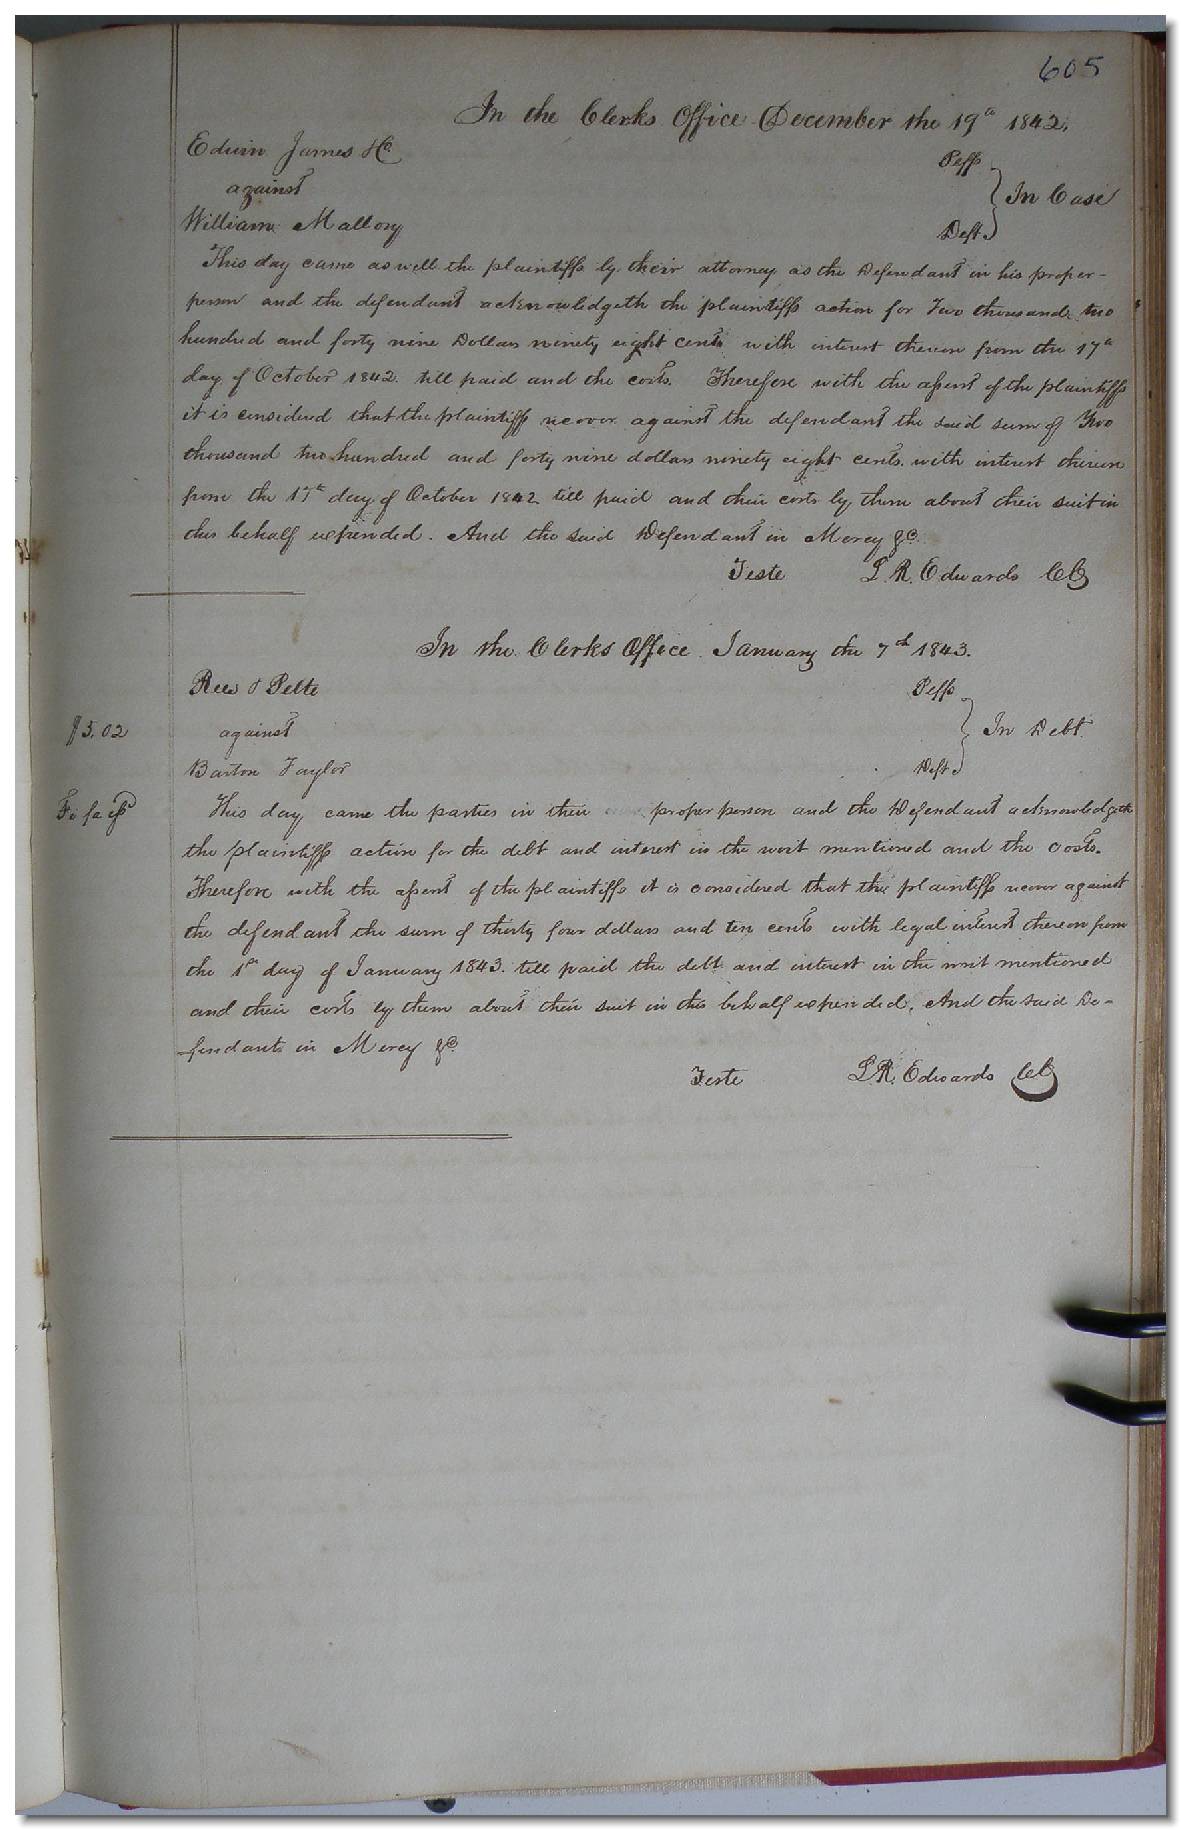 605
In the Clerks Office December the 19th 1842.
Edwin James & Co. Peffs
against } In Case
William Mallory Deft
This day came as well the plaintiffs by their attorney as the Defendant in his proper-
person and the defendant acknowledgeth the plaintiffs action for Two thousand two
hundred and forty nine Dollars ninety eight cents with interest thereon from the 17th
day of October 1842 till paid and the costs. Therefore with the assent of the plaintiffs
it is considered that the plaintiffs recover against the defendant the said sum of Two
thousand two hundred and forty nine dollars ninety eight cents with interest thereon
from the 17th day of October 1842 till paid and their costs by them about their suit in
this behalf expended. And the said Defendant in Mercy &c.
Teste L. R. Edwards CC
In the Clerks Office January the 7th 1843.
& Pelte Peffs
$3.02 against } In Debt
Barton Taylor Deft
Fi fa iss This day came the parties in their proper person and the Defendant acknowledgeth
the plaintiffs action for the debt and interest in the writ mentioned and the costs.
Therefore with the assent of the plaintiffs it is considered that the plaintiffs recover against
the defendant the sum of thirty four dollars and ten cents with legal interest thereon from
the 1st day of January 1843. till paid the debt and interest in the writ mentioned
and their costs by them about their suit in this behalf expended. And the said De-
fendants in Mercy &c.
Teste L. R. Edwards CC